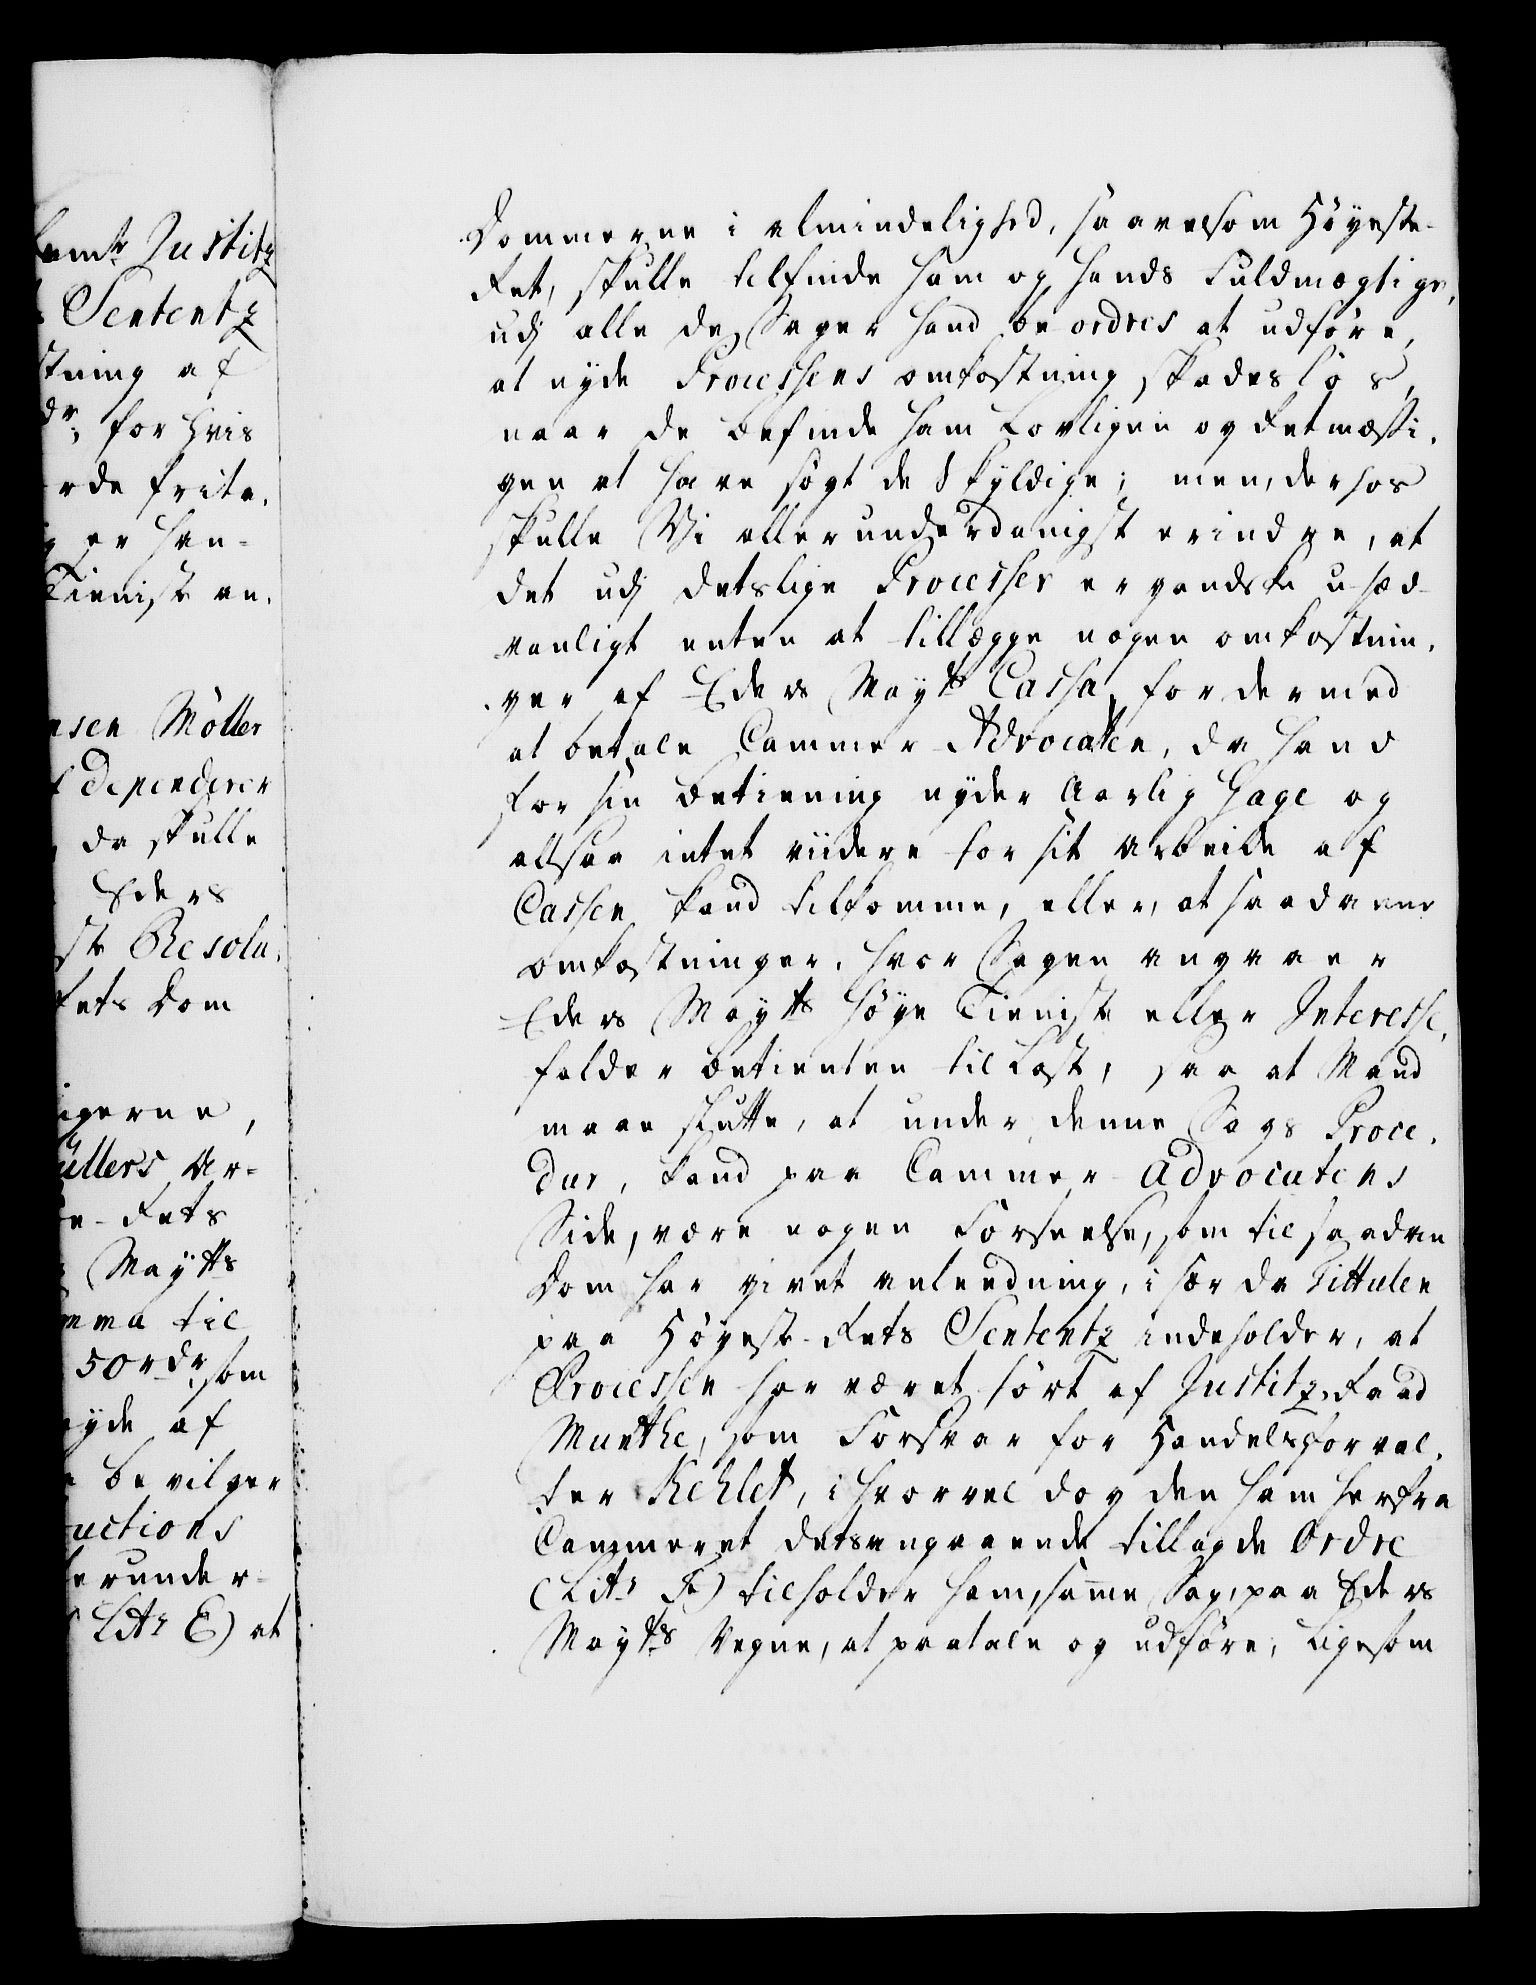 bemte Justitz
Sententz
stning af
dr, for hvis
rde frita¬
er han¬
Tieniste an¬
nsen Möller
dependerer
da skulle
Eders
ste Resolu¬
Rets Dom
igerne,
üllers Ar¬
e-Rets
Maytts
mma til
50 rdr, som
nyde af
bevilger
uctions
lerunder¬
Litr E) at
Dommerne i almindelighed, saavelsom Höyeste¬
Ret, skulle tilfinde ham og hands Fuldmægtige,
udj alle de Sager hand beordres at udföre,
at nyde Processens omkostning skadeslös,
naar de befinde ham Lovligen og Retmæssi¬
gen at have sögt de Skyldige; men, derhos
skulle Vi allerunderdanigst erindre, at
det udj detslige Processer er gandske u-sæd¬
vanligt enten at tillægge nogen omkostnin¬
ger af Eders Maytts Cassa, for dermed
at betale Cammer-Advocaten, da hand
for sin Betiening nyder Aarlig Gage og
altsaa intet viidere for sit Arbeide af
Cassen kand tilkomme, eller, at saadanne
omkostninger, hvor Sagen angaaer
Eders Maytts höye Tieniste eller Interesse,
falder betienten til Last, saa at Mand
maae slutte, at under denne Sags Proce¬
dur, kand paa Cammer-Advocatens
Side, være nogen Forseelse, som til saadan
Dom har givet anleedning, i sær da Tittulen
paa Höyeste-Rets Sententz indeholder, at
Processen har været fört af Justitz-Raad
Munthe, som Forsvar for Handelsforval¬
ter Kehlet, i hvorvel dog den ham herfra
Cammeret detsangaaende tillagde Ordre
(Litr F) tilholder ham, samme Sag, paa Eders
Maytts Vegne, at paatale og udföre, Ligesom